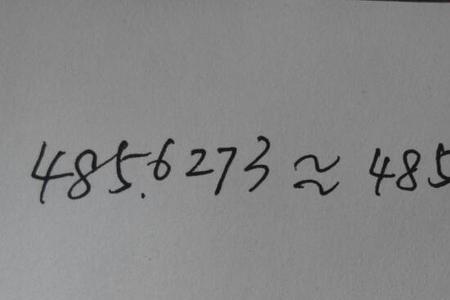 485.6273 ≈ 485